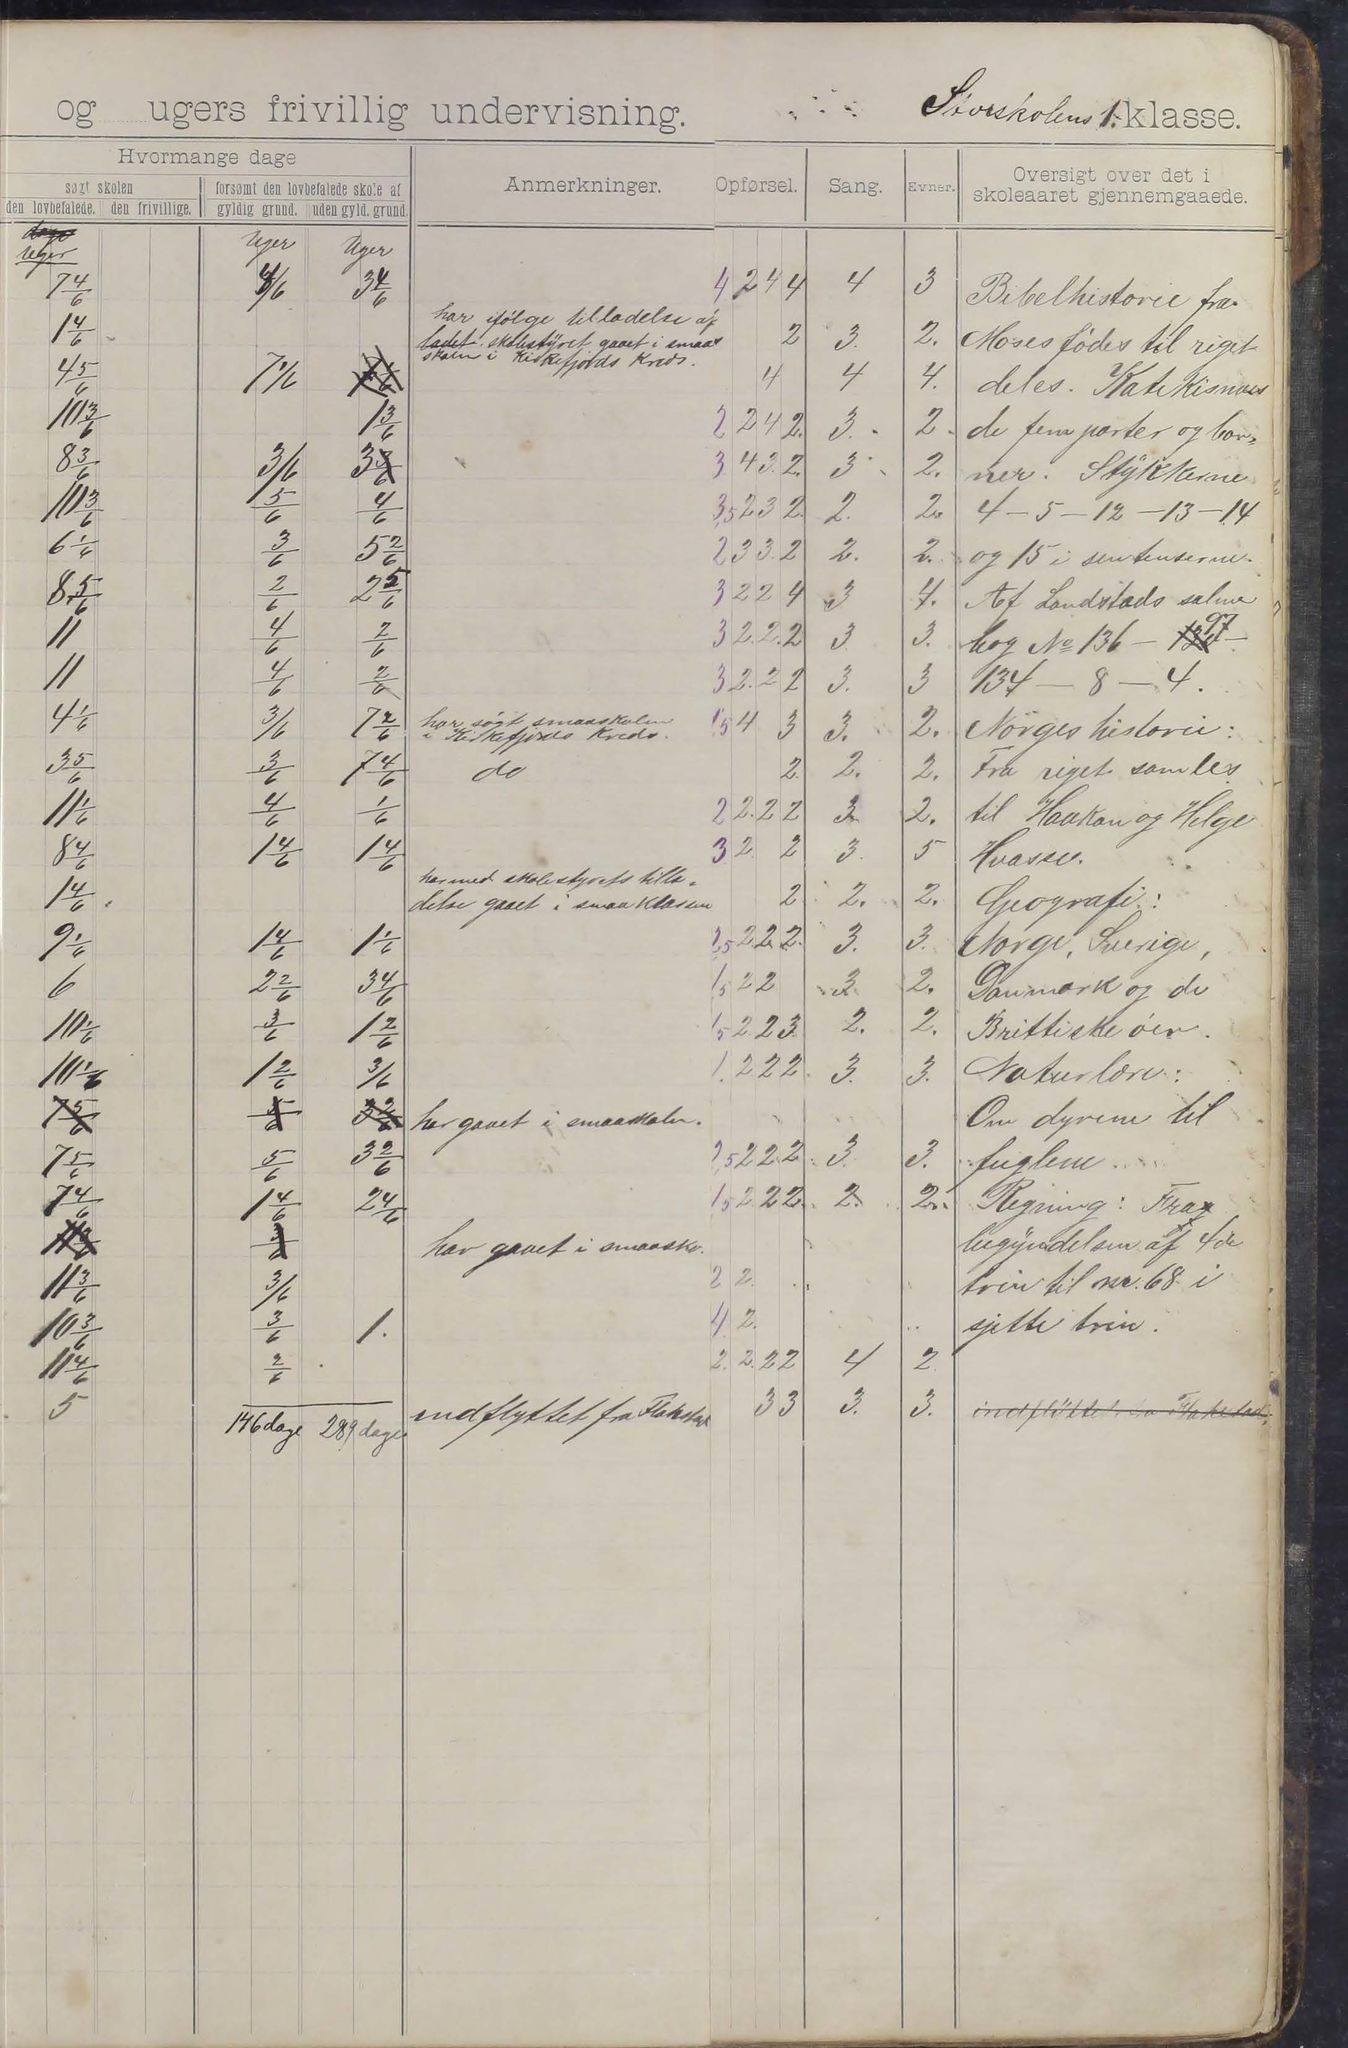 og ugers frivillig undervisning. Storskolens 1. klasse.
Hvormange dage
søgt skolen
forsømt den lovbefalede skole af
den lovbefalede. den frivillige. gyldig grund. uden gyld. grund.
Anmerkninger. Opførsel. Sang. Evner. Oversigt over det i
skoleaaret gjennemgaaede.
dage
uger Uger Uger
7 4/6 4/6 3 4/6 4 2 4 4 4 3 Bibelhistorie fra
har ifølge tilladelse af
1 4/6 ladet skolestyret gaaet i smaa 2 3. 2. Moses fødes til riget
skolen i Kirkefjords Kreds.
4 5/6 7 1/6 4 4 4. deles. Katekismus
11 3/6 1 3/6 2 2 4 2. 3. 2. de fem parter og bøn-
8 3/6 3/6 3 3/6 3 4 3. 2. 3 2. ner. Stykkerne
11 3/6 5/6 4/6 3,5 2 3 2. 2. 2. 4 - 5 - 12 - 13 - 14
6 1/6 3/6 5 2/6 2 3 3. 2 2. 2. og 15 i sentenserne.
8 5/6 2/6 2 5/6 3 2 2 4 3 4. Af Landstads salme
11 4/6 2/6 3 2. 2. 2 3 3. bog No 136 - 97 -
11 4/6 2/6 3 2. 2 2 3. 3 134 - 8 - 4.
4 1/6 3/6 7 2/6 har søgt smaaskolen 1,5 4 3 3. 2. Norges historie:
i Kirkefjords Kreds.
3 5/6 3/6 7 4/6 do 2 2. 2. Fra riget samles
11 1/6 4/6 1/6 2 2. 2 2 3 2. til Haakon og Helge
8 4/6 1 4/6 1 4/6 3 2 2 3. 5 Hvasse.
har med skolestyrets tilla-
1 4/6 delse gaaet i smaaklassen 2 2. 2. Geografi:
9 1/6 1 4/6 1 1/6 1,5 2 2 2. 3. 3. Norge, Sverige,
6 2 2/6 3 4/6 1,5 2 2 3 2. Danmark og de
10 1/6 3/6 1 2/6 1,5 2. 2 3. 2. 2. Brittiske øer.
10 1/6 1 2/6 3/6 1. 2 2 2. 3. 3. Naturlære:
7 5/6 5/6 3 2/6 har gaaet i smaaskolen. Om dyrene til
7 5/6 5/6 3 2/6 1,5 2 2. 2 3. 3. fuglene
7 4/6 1 4/6 2 4/6 1,5 2 2 2. 2. 2. Regning: Fra
11 3/6 3/6 har gaaet i smaasko. begyndelsen af 4de
11 3/6 3/6 2 2. trin til nr. 68 i
10 3/6 3/6 1. 4 2. sjette trin.
11 4/6 2/6 2. 2. 2 2 4 2
5 indflyttet fra Flakstad 3 3 3. 3. indflyttet fra Flakstad.
146 dage 289 dage